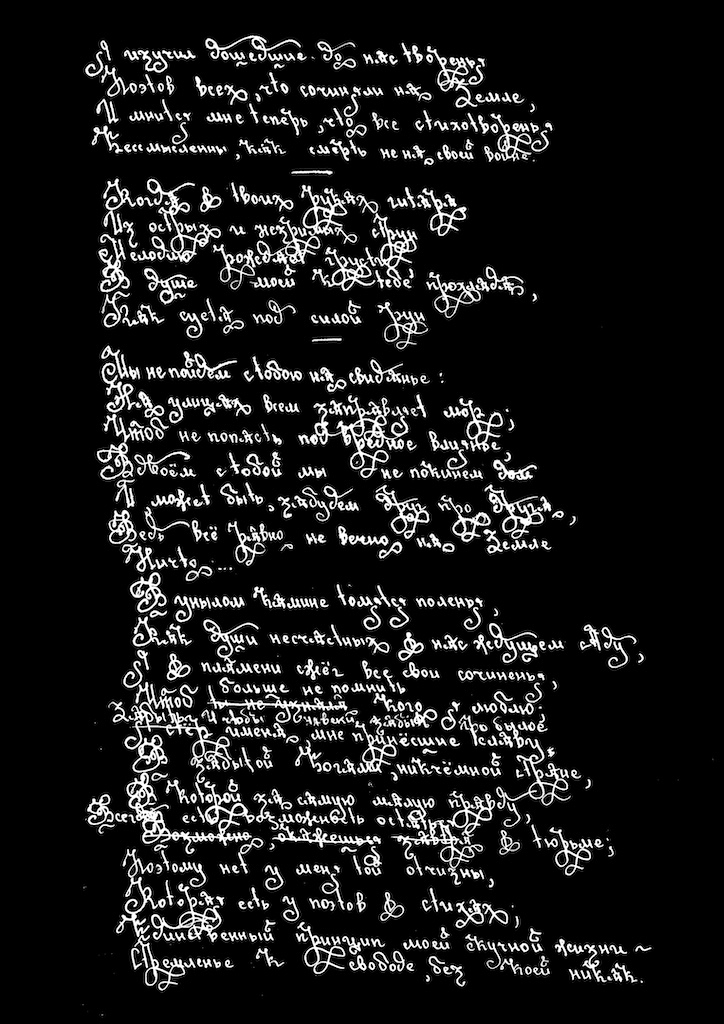 Я изучил дошедшие до нас творенья
Поэтов всех, что сочиняли на Земле,
И мнится мне теперь, что все стихотворенья
Бессмысленны, как смерть не на своей войне.
Когда в твоих руках гитара
Из острых и незримых струн
Мелодию рождает грусти,
В душе моей к тебе прохлада,
Как суета под силой рун
Мы не пойдём с тобою на свиданье:
На улицах всем заправляет мор;
Чтоб не попасть под вредное влиянье,
Вдвоём с тобой мы не покинем дом
И может быть, забудем друг про друга,
Ведь всё равно не вечно на Земле
Ничто...
В унылом камине томятся поленья,
Как души несчастных в нас ждущем аду,
Я в пламени сжёг все свои сочиненья,
больше не помнить
Чтоб ты не узнала кого я люблю;
Забыл и чтобы забыл про былое
имена, мне принёсшие славу
В забытой Богами, никчёмной стране,
В которой за самую малую правду,
Всегда есть возможность остаться
Возможно, окажешься в тюрьме;
Поэтому нет у меня той отчизны,
Которая есть у поэтов в стихах;
Единственный принцип моей скучной жизни ~
Стремленье к свободе, без коей никак.